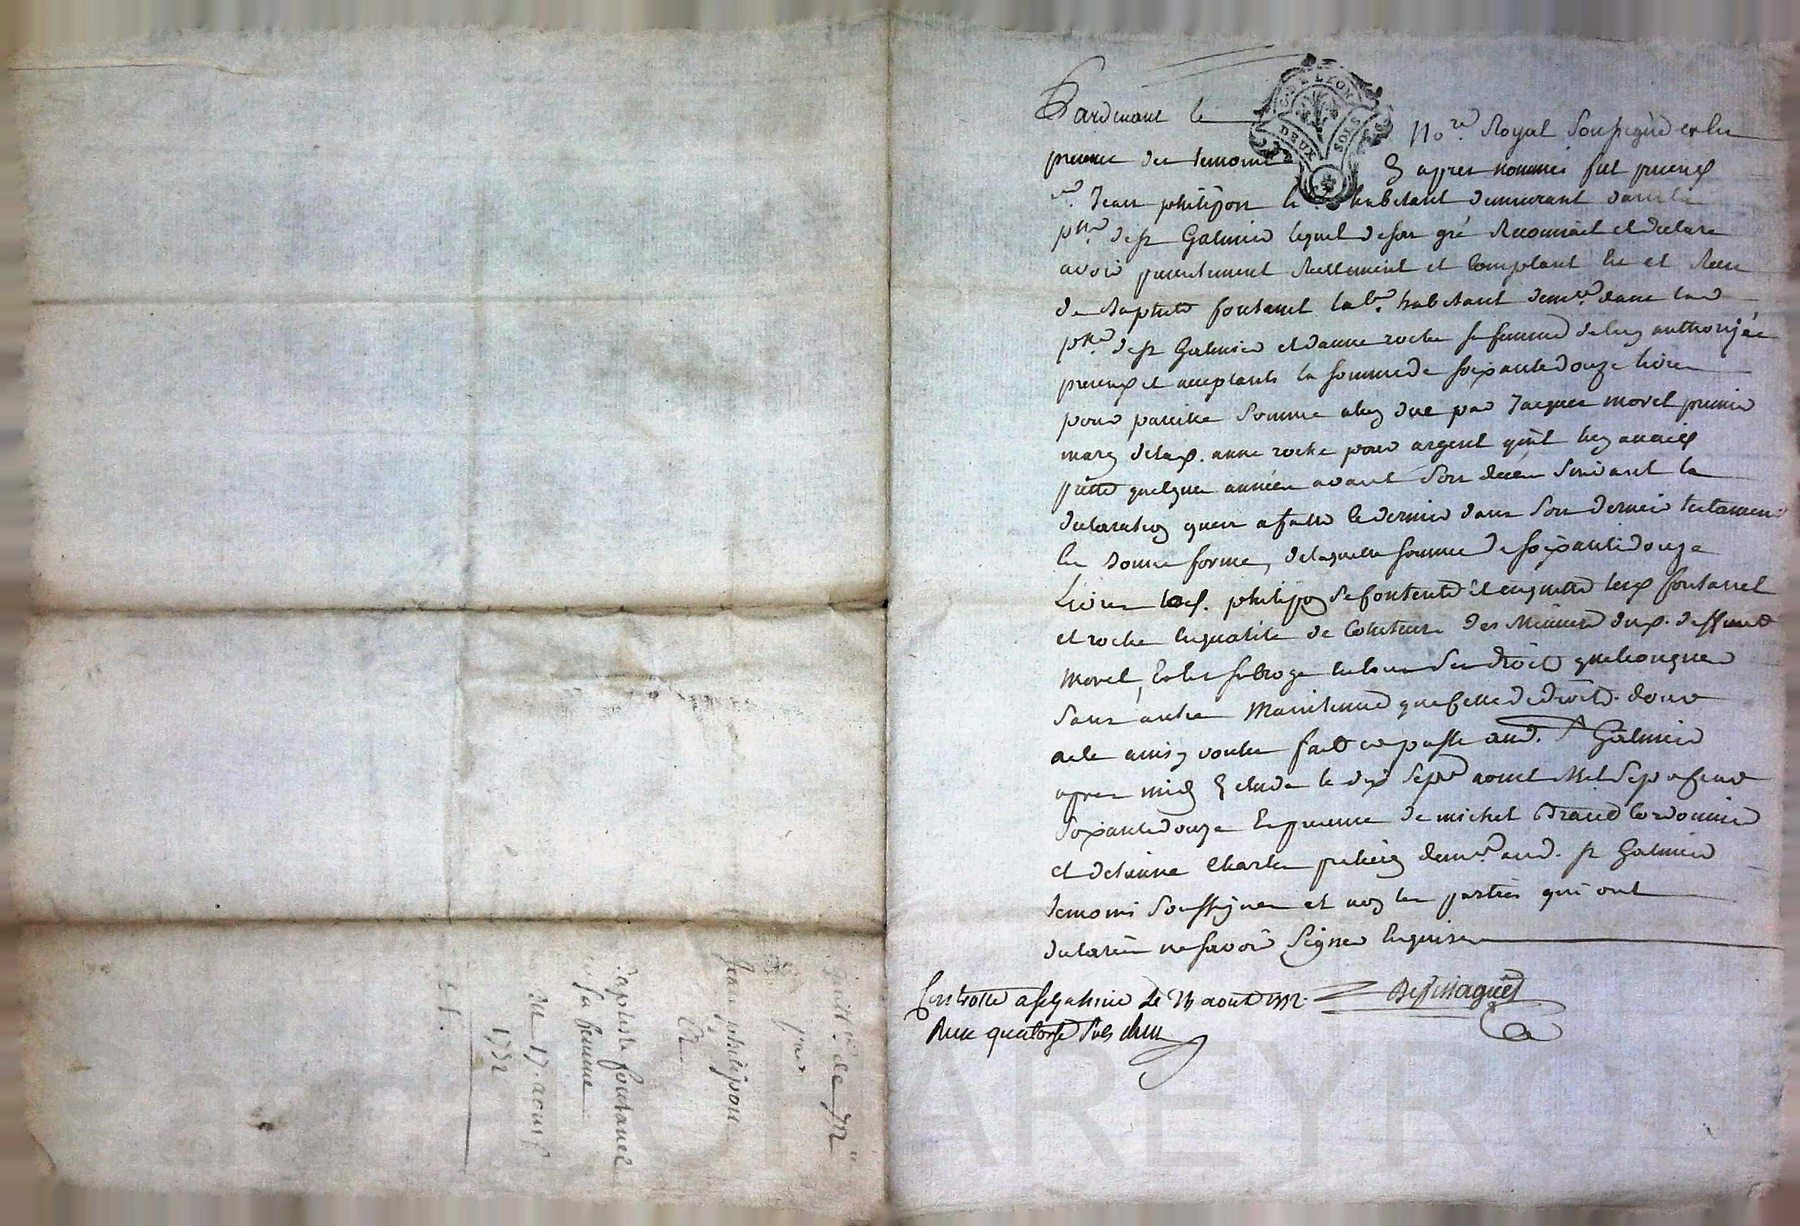 Pardevant le No.re Royal Soussigné et en
presence des temoins cy apres nommés fut present
Sr. Jean philipon habitant demeurant dans la
psse de St Galmier lequel de son gré Reconnoit et declare
avoir presentement Reellement et Comptant Eu et Receu
de Baptiste fontanel lab.r habitant demt dans lad
psse de St Galmier et danne roche sa femme de luy authorizée
presents et acceptants la somme de soixante douze livres
pour pareille somme a luy due par Jacques morel premier
mary de lad. anne roche pour argent quil luy avoit
prétté quelques années avant Son deces Suivant la
declaration quen a fatte ce dernier dans Son dernier testament
En bonne forme, de laquelle somme de soixante douze
Livres led. philippon se contente et en quitte lesd fontanel
et roche En qualité de dud. deffunt
morel, Et les subroge en tous ses droits quelconques
Sans autre Maintenue que celle de droit. dont
acte ainsy voulu fait et passé aud. St Galmier
apres midy Etude le dix sept aoust Mil Sept Cent
Soixante douze En presence de michel Cordonnier
et detienne Charles demt aud. St Galmier
temoins Soussignes et non les parties qui ont
declaré ne savoir Signer Enquises
Controllé a St Galmier Le aout 1772.
Recu quatorze sols
Quitt.ce de 72 ll
par
Jean philipon
A
Baptiste fontanel
et sa femme
Du 17. aoust
1772
DEUX SOLS
G. DE LYON
CHAREYRON